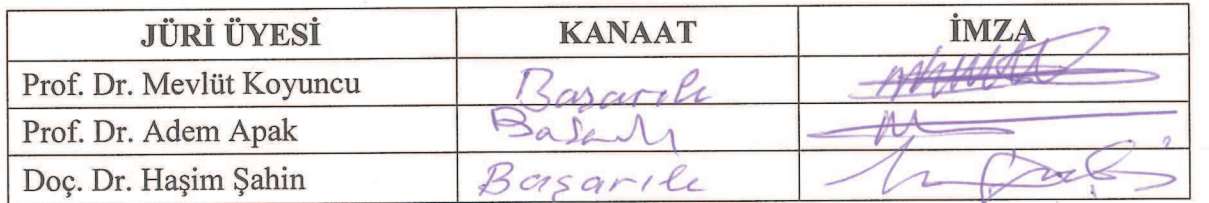 JÜRİ ÜYESİ KANAAT İMZA
Prof. Dr. Mevlüt Koyuncu Basarılı
Prof. Dr. Adem Apak Basarılı
Doç. Dr. Haşim Şahin Başarılı